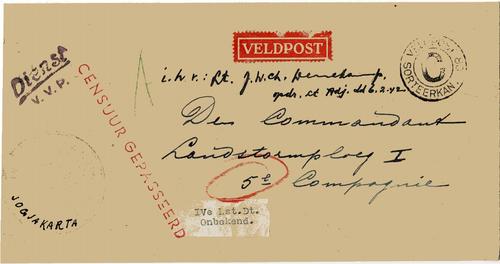 VELDPOST
Dienst
V.V.P.
CENSUUR GEPASSEERD
A
i.h.v.: Lt. J.W.Ch.
opdr. Lt Adj. dd 6.2.42
VELDPOST
SORTEERKAN
C
Den Commandant
Landstormploeg I
5e Compagnie
IVe Lst.Dt.
Onbekend.
JOGJAKARTA